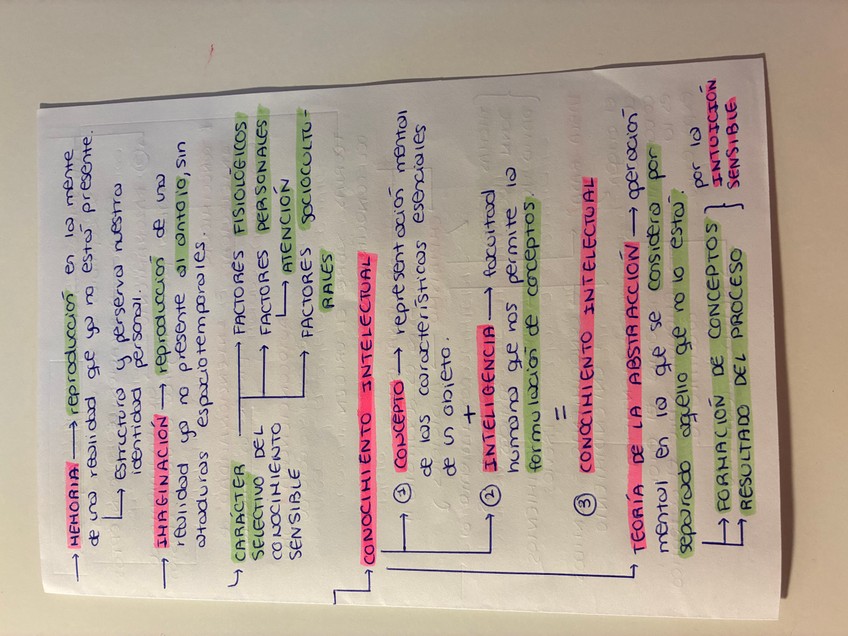 → MEMORIA → reproducción en la mente
de una realidad que ya no está presente.
↳ estructura y perserva nuestra
identidad personal.
→ IMAGINACIÓN → reproducción de una
realidad ya no presente al antojo, sin
ataduras espaciotemporales.
↳ CARÁCTER → FACTORES FISIOLÓGICOS
SELECTIVO DEL → FACTORES PERSONALES
CONOCIMIENTO ↳ ATENCIÓN
SENSIBLE → FACTORES SOCIOCULTU-
RALES
→ CONOCIMIENTO INTELECTUAL
→ ① CONCEPTO → representación mental
de las características esenciales
de un objeto.
+
→ ② INTELIGENCIA → facultad
humana que nos permite la
formulación de conceptos.
=
③ CONOCIMIENTO INTELECTUAL
→ TEORÍA DE LA ABSTRACCIÓN → operación
mental en la que se considera por
separado aquello que no lo está.
↳ FORMACIÓN DE CONCEPTOS } por la
↳ RESULTADO DEL PROCESO INTUICIÓN
SENSIBLE